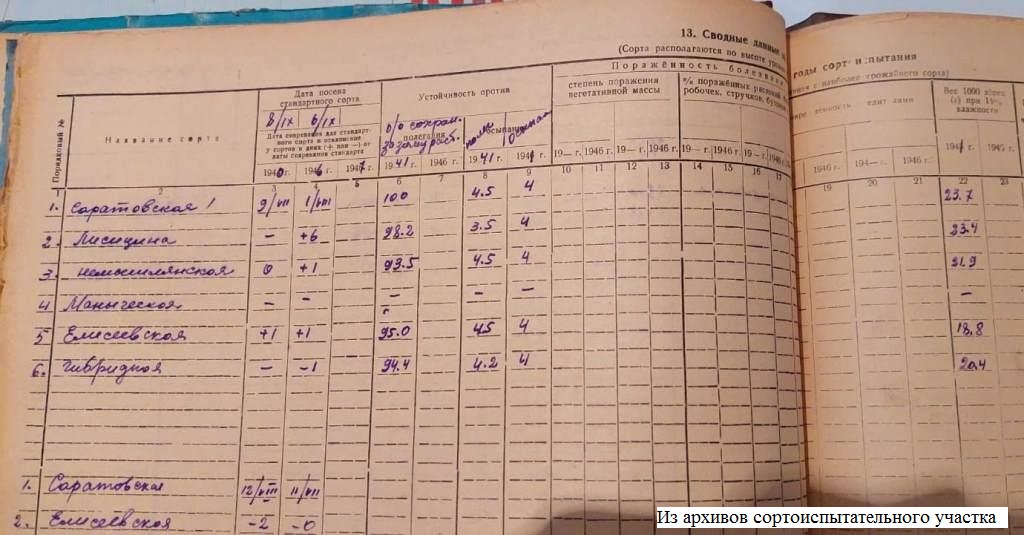 13. Сводные данные
(Сорта располагаются по высоте
годы сорт испытания
наиболее урожайного сорта)
Порядковый №
Название сорта
Дата посева стандартного сорта
8/IX 6/IX
Дата созревания для стандартного сорта и отклонение у сортов в днях (+ или —) от даты созревания стандарта
Устойчивость против
полегания
осыпания
Поражённость болезнями
степень поражения вегетативной массы
% поражённых растений
робочек, стручков,
Вес 1000 зёрен (г) при 15% влажности
1940 г. 1946 г. 1941 г. 1946 г. 1941 г. 19— г. 1946 г. 19— г. 1946 г. 19— г. 1946 г. 19— г. 1946 г. 1946 г. 194— г. 1946 г. 1941 г. 1945 г.
2 3 4 5 6 7 8 9 10 11 12 13 14 15 16 17 19 20 21 22 23
1. Саратовская 1 9/VII 1/VII 100 4.5 4 23.7
2. Лисицына – +6 98.2 3.5 4 23.4
3. 0 +1 93.5 4.5 4 21.9
4 Манычская – – – – – –
5 Елисеевская +1 +1 95.0 45 4 18.8
6. Гибридная – -1 94.4 4.2 4 20.4
1. Саратовская 12/VIII 11/VII
2. Елисеевская -2 -0
Из архивов сортоиспытательного участка